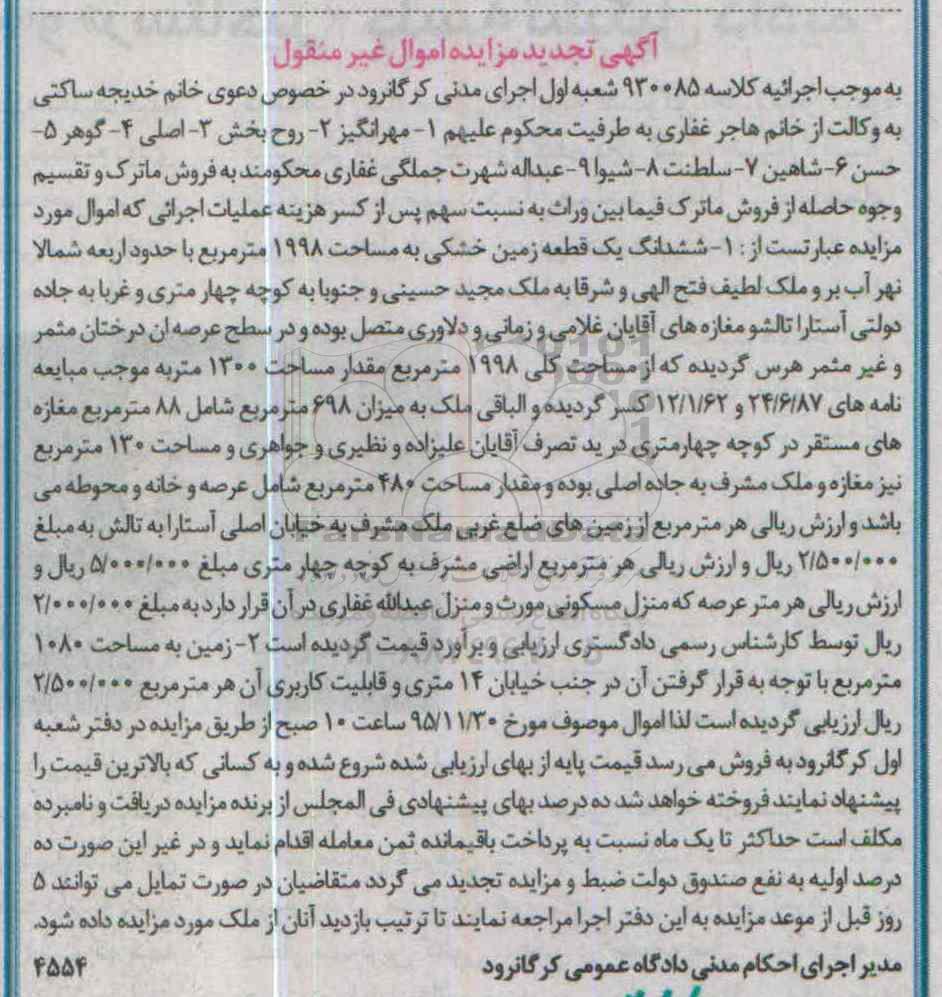 آگهی تجدید مزایده اموال غیر منقول
به موجب اجرائیه کلاسه ۹۳۰۰۸۵ شعبه اول اجرای مدنی کرگانرود در خصوص دعوی خانم خدیجه ساکتی
به وکالت از خانم هاجر غفاری به طرفیت محکوم علیهم ۱- مهرانگیز ۲- روح بخش ۳- اصلی ۴- گوهر ۵-
حسن ۶- شاهین ۷- سلطنت ۸- شیوا ۹- عبداله شهرت جملگی غفاری محکومند به فروش ماترک و تقسیم
وجوه حاصله از فروش ماترک فیما بین وراث به نسبت سهم پس از کسر هزینه عملیات اجرائی که اموال مورد
مزایده عبارتست از : ۱- ششدانگ یک قطعه زمین خشکی به مساحت ۱۹۹۸ مترمربع با حدود اربعه شمالا
نهر آب بر و ملک لطیف فتح الهی و شرقا به ملک مجید حسینی و جنوبا به کوچه چهار متری و غربا به جاده
دولتی آستارا تالشو مغازه های آقایان غلامی و زمانی و دلاوری متصل بوده و در سطح عرصه ان درختان مثمر
و غیر مثمر هرس گردیده که از مساحت کلی ۱۹۹۸ مترمربع مقدار مساحت ۱۳۰۰ متربه موجب مبایعه
نامه های ۲۴/۶/۸۷ و ۱۲/۱/۶۲ کسر گردیده و الباقی ملک به میزان ۶۹۸ مترمربع شامل ۸۸ مترمربع مغازه
های مستقر در کوچه چهارمتری در ید تصرف آقایان علیزاده و نظیری و جواهری و مساحت ۱۳۰ مترمربع
نیز مغازه و ملک مشرف به جاده اصلی بوده و مقدار مساحت ۴۸۰ مترمربع شامل عرصه و خانه و محوطه می
باشد و ارزش ریالی هر مترمربع از زمین های ضلع غربی ملک مشرف به خیابان اصلی آستارا به تالش به مبلغ
۲/۵۰۰/۰۰۰ ریال و ارزش ریالی هر مترمربع اراضی مشرف به کوچه چهار متری مبلغ ۵/۰۰۰/۰۰۰ ریال و
ارزش ریالی هر متر عرصه که منزل مسکونی مورث و منزل عبدالله غفاری در آن قرار دارد به مبلغ ۲/۰۰۰/۰۰۰
ریال توسط کارشناس رسمی دادگستری ارزیابی و برآورد قیمت گردیده است ۲- زمین به مساحت ۱۰۸۰
مترمربع با توجه به قرار گرفتن آن در جنب خیابان ۱۴ متری و قابلیت کاربری آن هر مترمربع ۲/۵۰۰/۰۰۰
ریال ارزیابی گردیده است لذا اموال موصوف مورخ ۹۵/۱۱/۳۰ ساعت ۱۰ صبح از طریق مزایده در دفتر شعبه
اول کرگانرود به فروش می رسد قیمت پایه از بهای ارزیابی شده شروع شده و به کسانی که بالاترین قیمت را
پیشنهاد نمایند فروخته خواهد شد ده درصد بهای پیشنهادی فی المجلس از برنده مزایده دریافت و نامبرده
مکلف است حداکثر تا یک ماه نسبت به پرداخت باقیمانده ثمن معامله اقدام نماید و در غیر این صورت ده
درصد اولیه به نفع صندوق دولت ضبط و مزایده تجدید می گردد متقاضیان در صورت تمایل می توانند ۵
روز قبل از موعد مزایده به این دفتر اجرا مراجعه نمایند تا ترتیب بازدید آنان از ملک مورد مزایده داده شود.
مدیر اجرای احکام مدنی دادگاه عمومی کرگانرود ۴۵۵۴